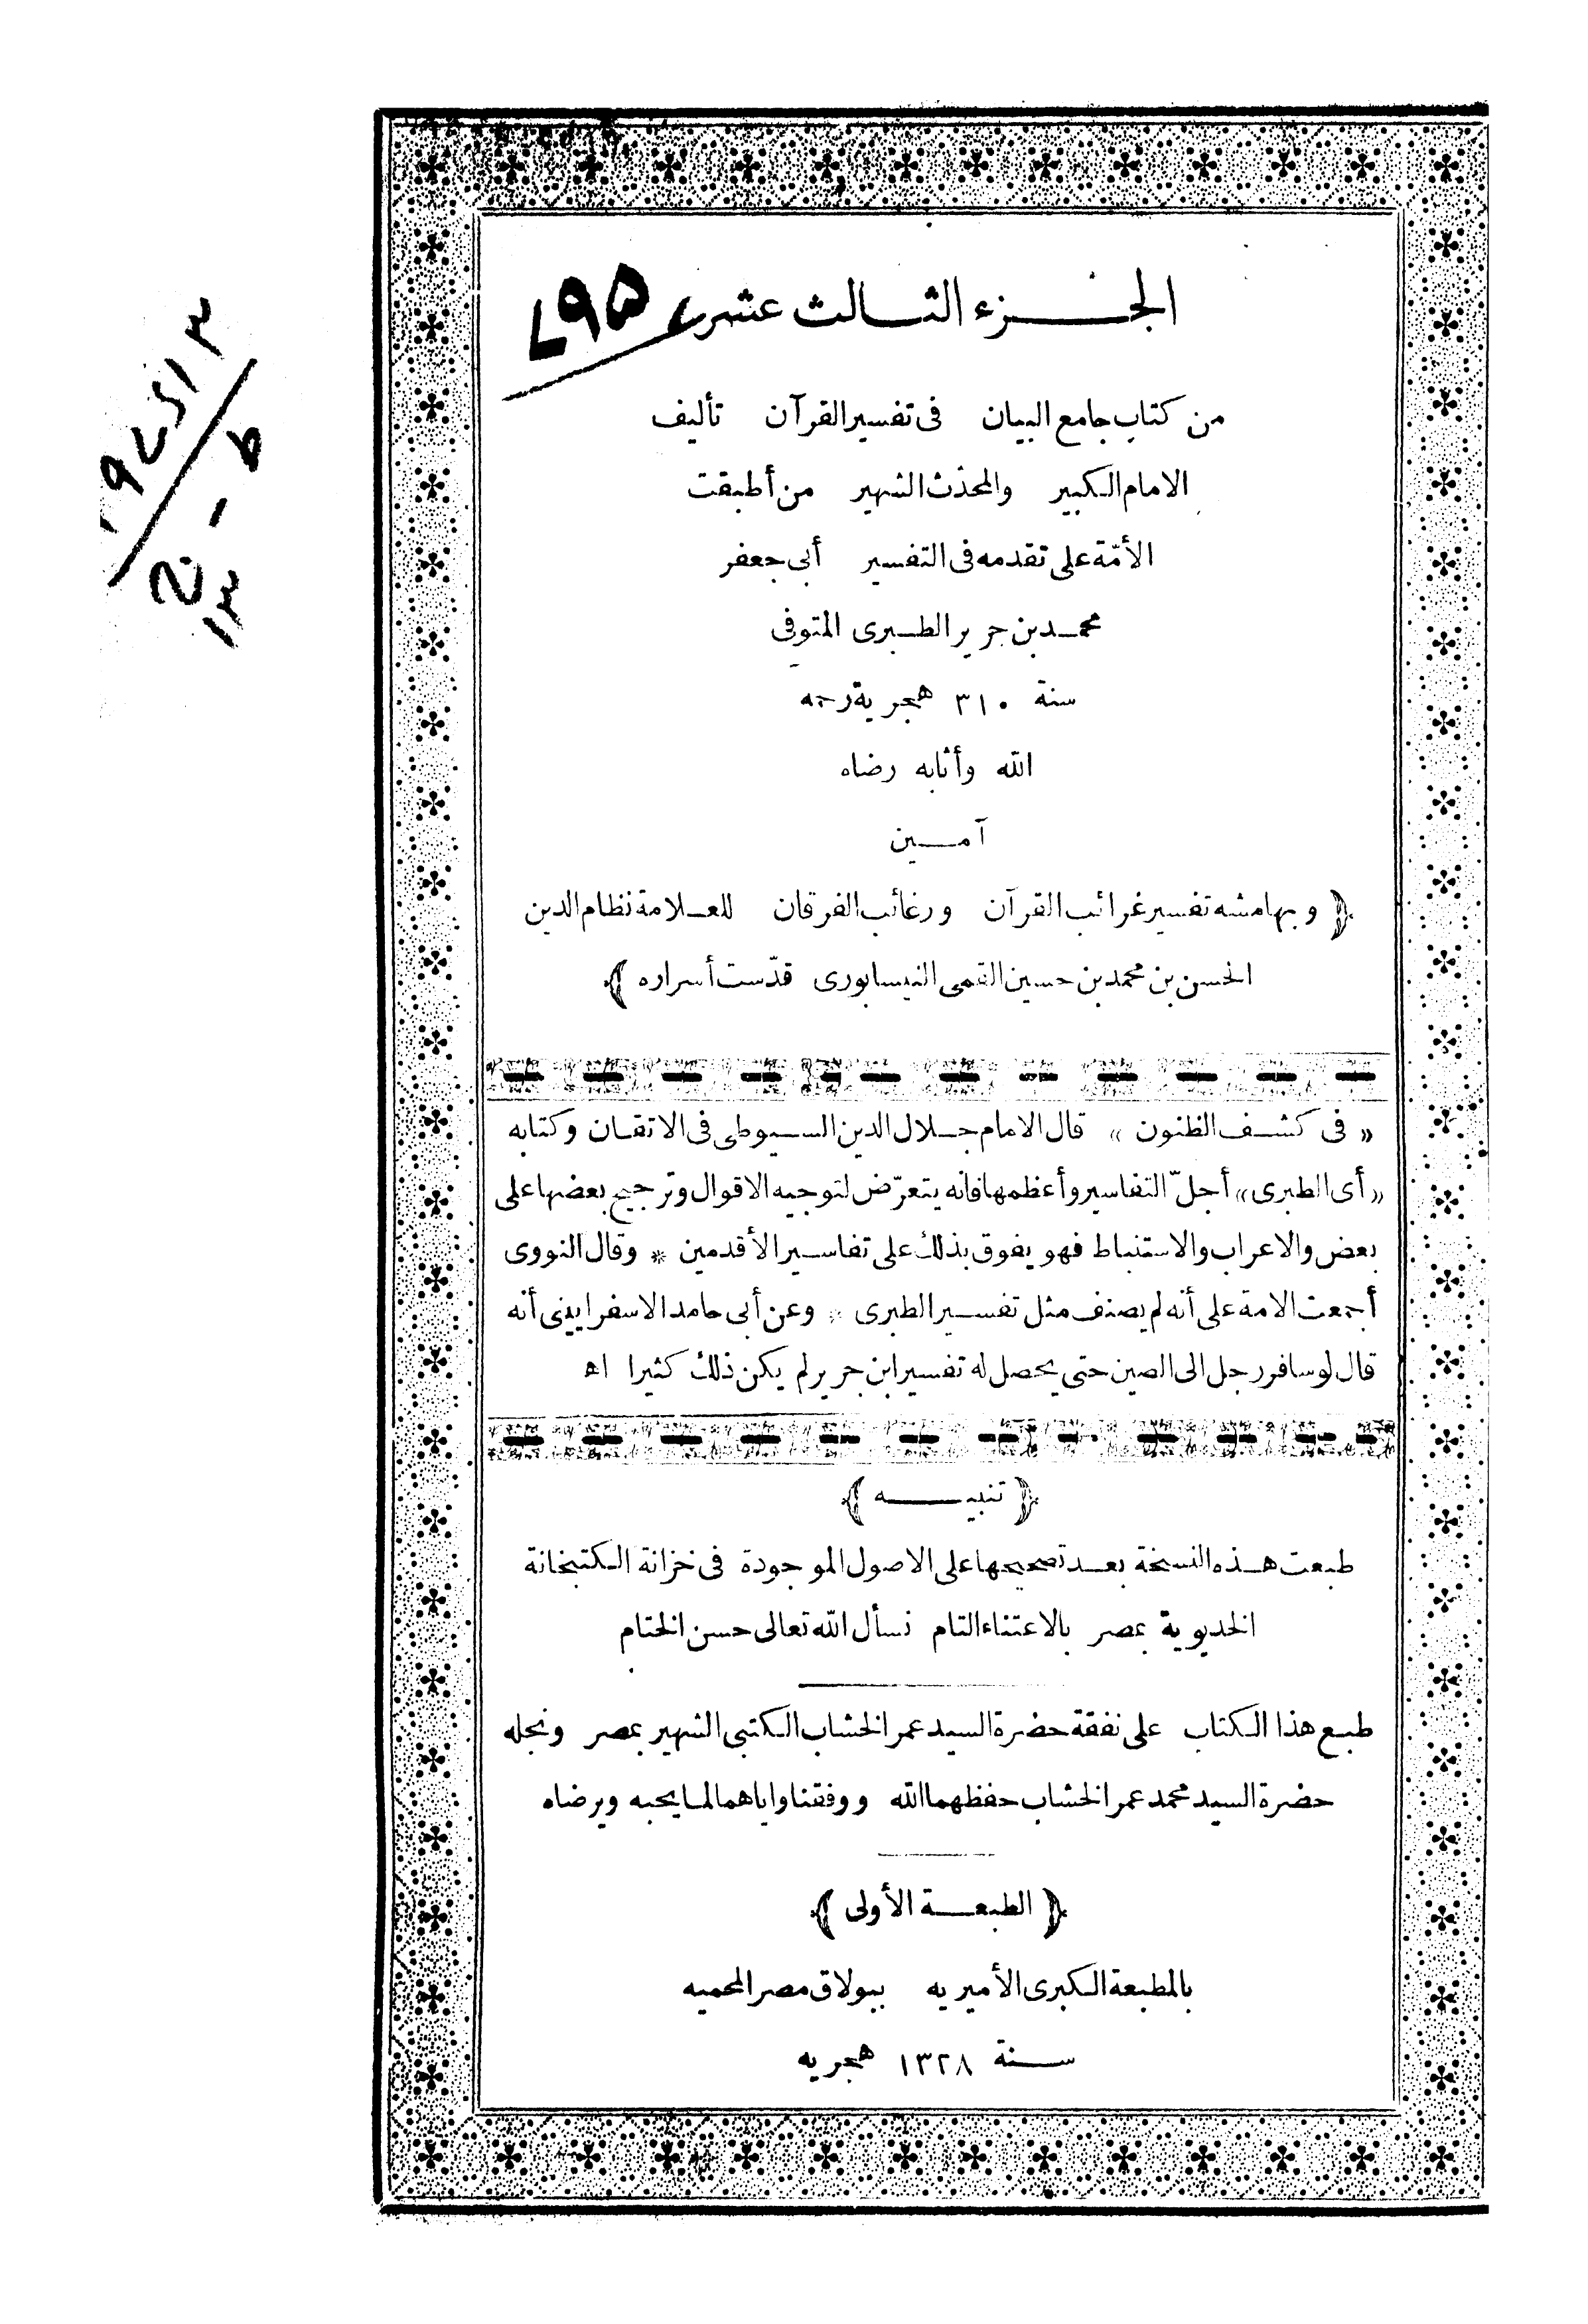 الجزء الثالث عشر
من كتاب جامع البيان فى تفسير القرآن تأليف
الامام الكبير والمحدّث الشهير من أطبقت
الأمّة على تقدمه فى التفسير أبى جعفر
محمد بن جرير الطبرى المتوفى
سنة ٣١٠ هجرية رحمه
الله وأثابه رضاه
آمين
﴿ وبهامشه تفسير غرائب القرآن ورغائب الفرقان للعلامة نظام الدين
الحسن بن محمد بن حسين القمى النيسابورى قدّست أسراره ﴾
« فى كشف الظنون » قال الامام جلال الدين السيوطى فى الاتقان وكتابه
« أى الطبرى » أجلّ التفاسير وأعظمها فانه يتعرّض لتوجيه الاقوال وترجيح بعضها على
بعض والاعراب والاستنباط فهو يفوق بذلك على تفاسير الأقدمين * وقال النووى
أجمعت الامة على أنه لم يصنف مثل تفسير الطبرى * وعن أبى حامد الاسفراينى أنه
قال لو سافر رجل الى الصين حتى يحصل له تفسير ابن جرير لم يكن ذلك كثيرا اه
﴿ تنبيه ﴾
طبعت هذه النسخة بعد تصحيحها على الاصول الموجودة فى خزانة الكتبخانة
الخديوية بمصر بالاعتناء التام نسأل الله تعالى حسن الختام
طبع هذا الكتاب على نفقة حضرة السيد عمر الخشاب الكتبى الشهير بمصر ونجله
حضرة السيد محمد عمر الخشاب حفظهما الله ووفقنا واياهما لما يحبه ويرضاه
﴿ الطبعة الأولى ﴾
بالمطبعة الكبرى الأميريه ببولاق مصر المحميه
سنة ١٣٢٨ هجريه